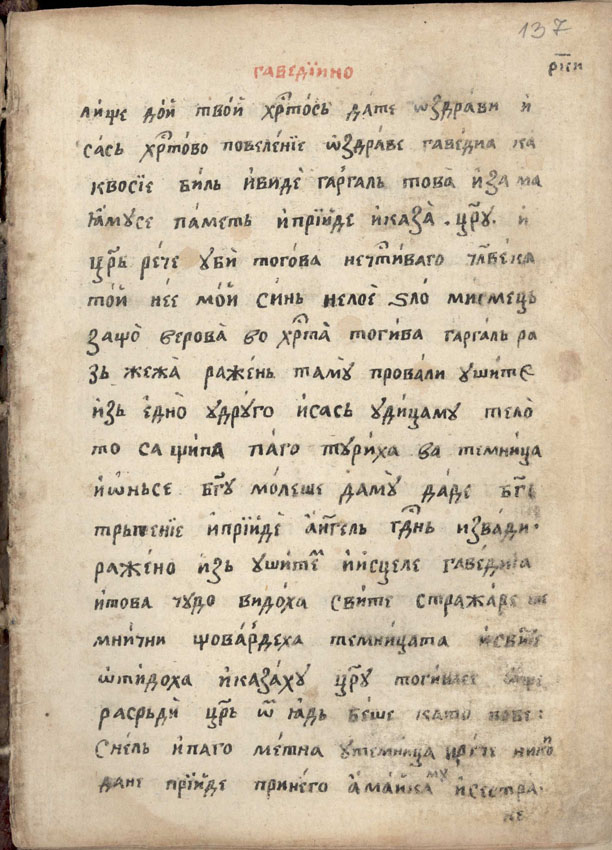 137
гаведїино
рк҃и
ли́ѡе до́й тво́й хрⷭ҇то́сь да́те ѡ҆здра́ви и҆
са́сь хрⷭ҇тово повеле́нїе ѡ҆здра́ве гаве́диа ка
квосїе би́ль и҆видѐ гарга́ль това̀ и҆за ма
ꙗ҆́мусе па́меть и҆прїи́де и҆каза̀ . цр҃у̀ . и҆
цр҃ь ре́че уби̇̀ тогова нечⷭ҇ти́ваго чл҃ве́ка
то́й не́е мо́й си́нь нело̀е ѕло́ мисмець
защо̀ верова во хрⷭ҇та̀ тоги́ва гарга́ль ра
зь жежа̀ раже́нь таму̀ провали ушитѐ
и҆зь е҆дно̀ удру́го и҆сась уди́цаму тело̀
то са щипа паго тури́ха ва темни́ца
и҆ѡ҆́ньсе бг҃у мо́леше даму̀ дадѐ бг҃ь
трьпе́нїе и҆прїи́де а҆́нг҃ель гдⷭ҇нь извади
раже́но и҆зь ушитеⷨ и҆и҆сце́ле гаве́диа
и҆това чу́до видо́ха сви́те стража́ре те
мни́чни щова́рдеха темни́цата и҆сви́те
ѿи́доха и҆каза́ху цр҃у тоги́васе
расрьди̇̀ цр҃ь ѿ ꙗ҆́дь бе́ше като пове
сне́ль и҆паго ме́тна утемни́ца и҆ре́че никоⷩ҇
дане прїи́де прине́го а҆ма́йкамꙋ и҆сестра
не